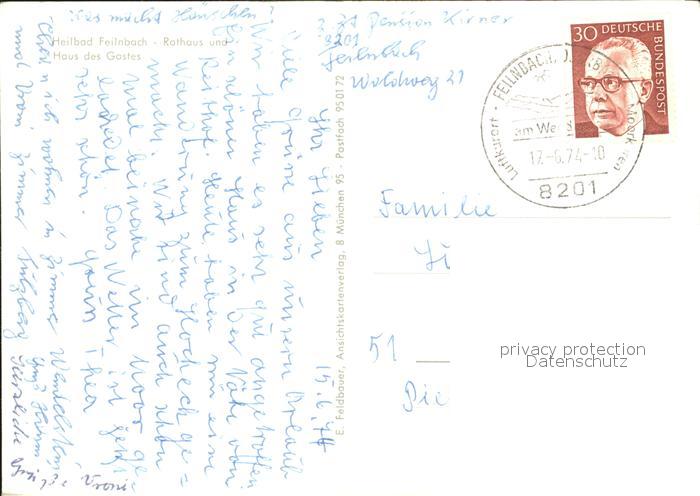 Was macht Hänschen?
Heilbad Feilnbach - Rathaus und
Haus des Gastes
z. Zt Pension Kirner
8201
Feilnbach
Waldweg 21
30 DEUTSCHE
BUNDESPOST
FEILNBACH
Luftkurort
am We
Moor
17.-6.74-10
8201
15.6.74
Ihr Lieben
Viele Grüße aus unserm Urlaub
Wir haben es sehr gut angetroffen
Ein schönes Haus in der Nähe von
Reithof. Heute haben wir eine
Wanderung zum Hocheck ge=
macht. Wir sind auch schon
mal beinahe im Moor ge
landet. Das Wetter ist jetzt
sehr schön.
Eltern u ich wohnen in Zimmer Wendelstein
und Vroni Zimmer Sulzberg
Herzliche Grüße Vroni
E. Feldbauer, Ansichtskartenverlag, 8 München 95 - Postfach 950172
Familie
51
privacy protection
Datenschutz